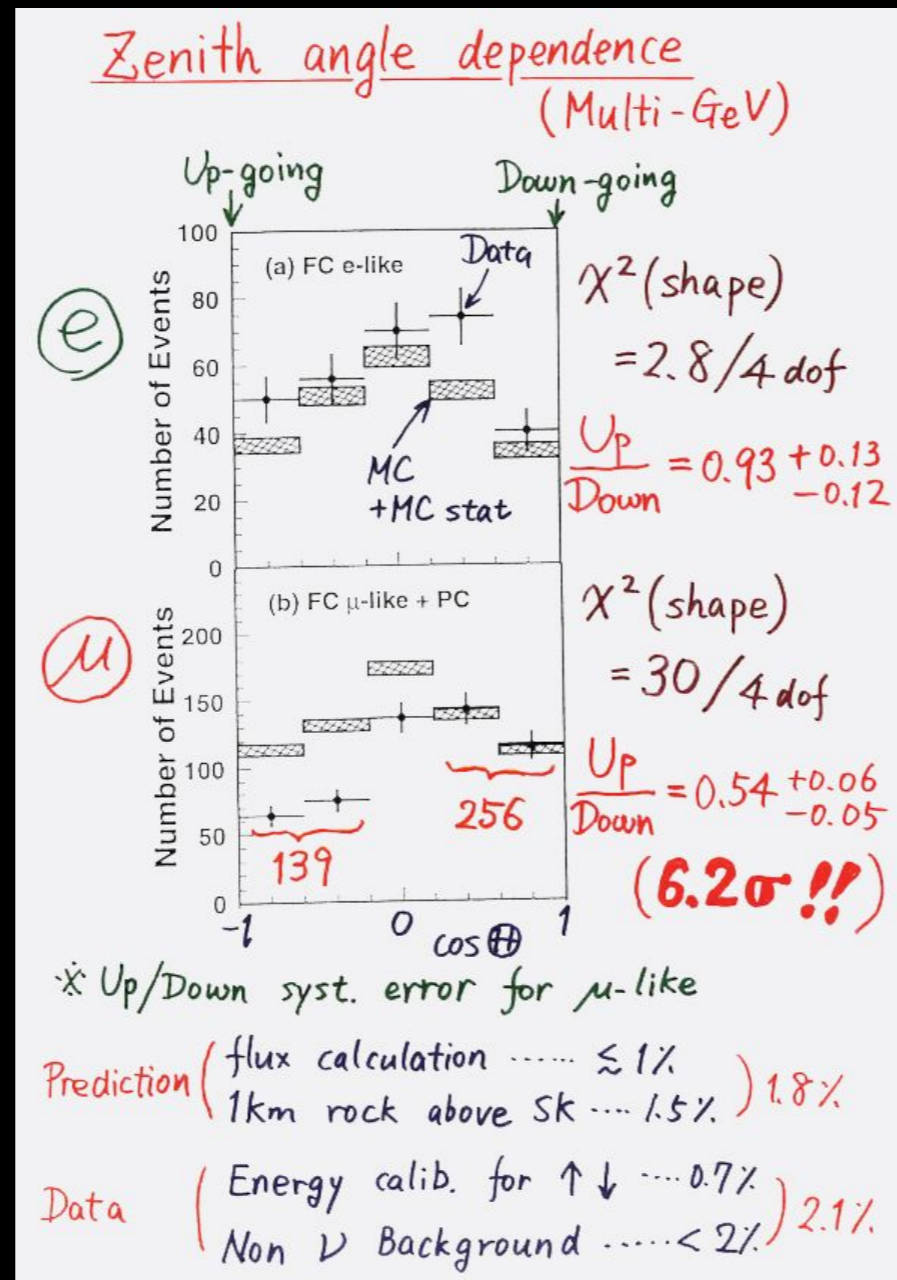 Zenith angle dependence
(Multi-GeV)
Up-going
Down-going
Number of Events
100
80
60
40
20
0
(a) FC e-like
Data
MC
+MC stat
e
χ²(shape)
=2.8/4 dof
Up/Down = 0.93 +0.13 -0.12
Number of Events
200
150
100
50
0
(b) FC μ-like + PC
139
256
μ
-1 0 1
cos Θ
χ²(shape)
=30/4 dof
Up/Down = 0.54 +0.06 -0.05
(6.2σ!!)
※ Up/Down syst. error for μ-like
Prediction ( flux calculation ...... ≲ 1%
1km rock above SK .... 1.5% ) 1.8%
Data ( Energy calib. for ↑ ↓ .... 0.7%
Non ν Background ..... < 2% ) 2.1%